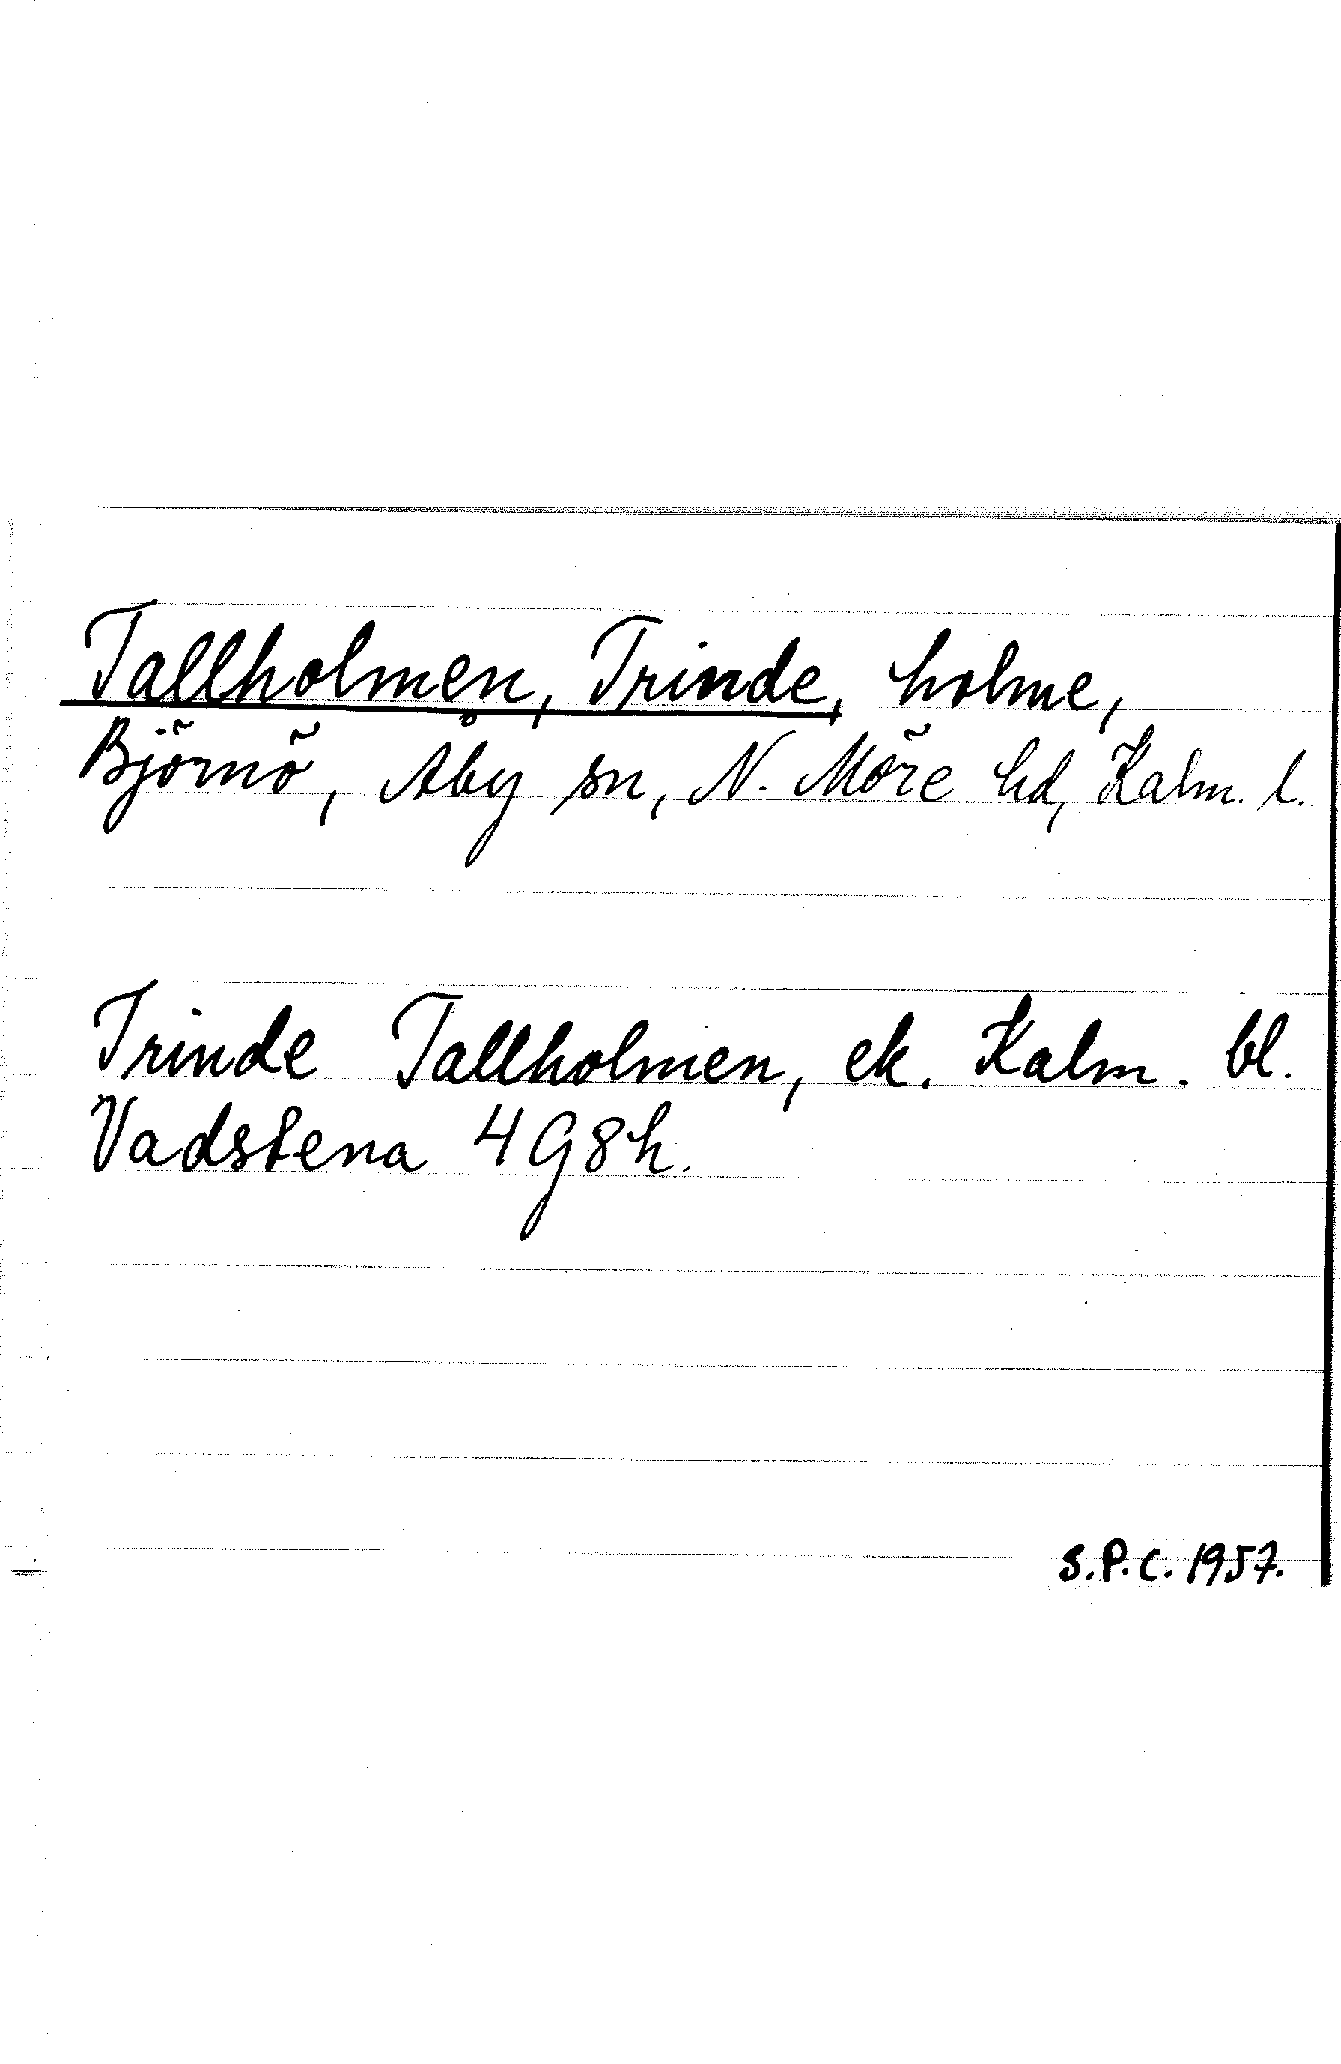 Tallholmen, Trinde, holme,
Björnö, Åby sn, N. Möre hd, Kalm. l.
Trinde Tallholmen, ek. Kalm. bl.
Vadstena 4G8h.
S.P.C. 1957.